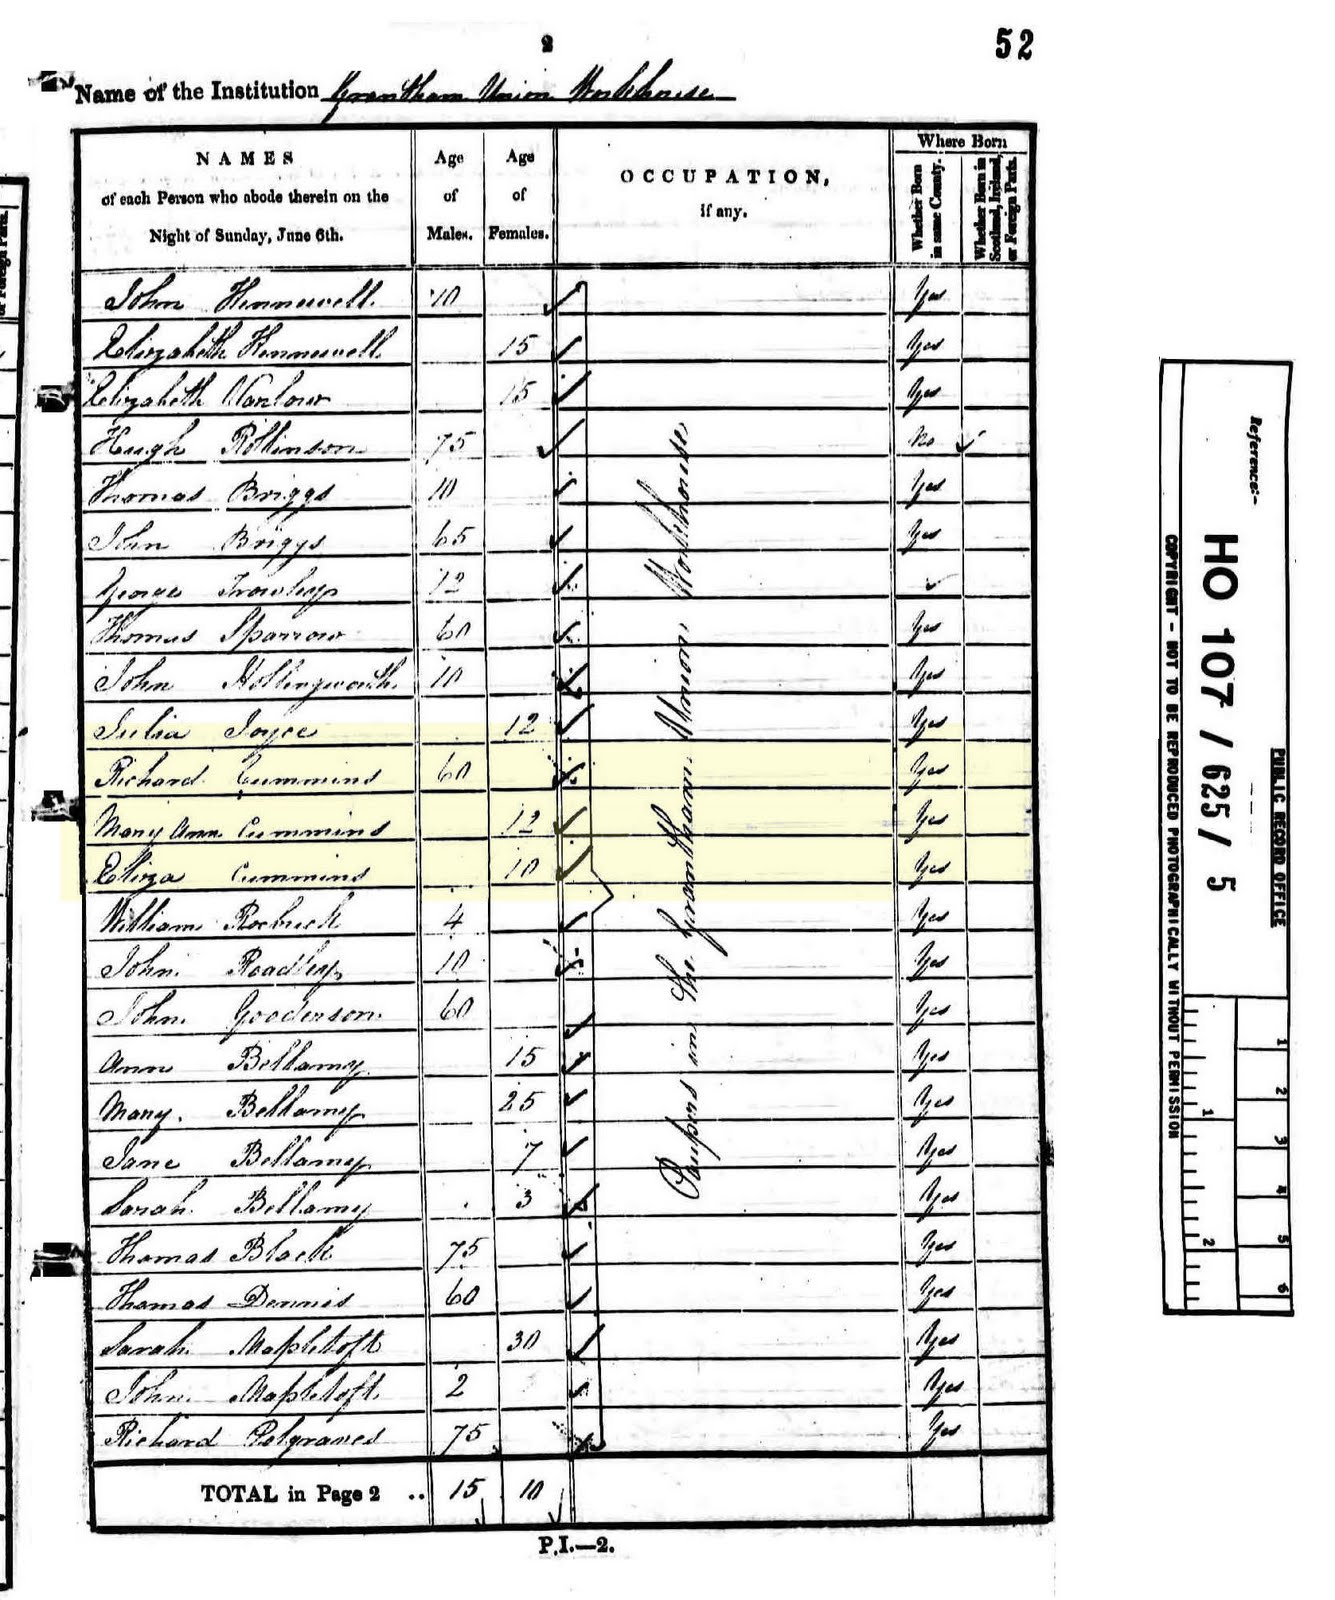 52
2
Name of the Institution Grantham Union Workhouse
NAMES of each Person who abode therein on the Night of Sunday, June 6th.
Age of Males.
Age of Females.
OCCUPATION, if any.
Where Born
Whether Born in same County.
Whether Born in Scotland, Ireland, or Foreign Parts.
John Hennewell 10 Yes
Elizabeth Hennewell 15 Yes
Elizabeth 15 Yes
Hugh Rollinson 75 No
Thomas Briggs 10 Yes
John Briggs 65 Yes
George 12
Thomas Sparrow 60 Yes
John Hollingworth 10 Yes
Julia Joyce 12 Yes
Richard Cummins 60 Yes
Mary Ann Cummins 12 Yes
Eliza Cummins 10 Yes
William Roebuck 4 Yes
John Roadley 10 Yes
John Gooderson 60 Yes
Ann Bellamy 15 Yes
Mary Bellamy 25 Yes
Jane Bellamy 7 Yes
Sarah Bellamy 3 Yes
Thomas Black 75 Yes
Thomas Dennis 60 Yes
Sarah Mapletoft 30 Yes
John Mapletoft 2 Yes
Richard 75 Yes
Paupers in the Grantham Union Workhouse
TOTAL in Page 2 .. 15 10
P.I.—2.
Reference:-
HO 107 / 625 / 5
COPYRIGHT - NOT TO BE REPRODUCED PHOTOGRAPHICALLY WITHOUT PERMISSION
PUBLIC RECORD OFFICE
1 2 3 4 5 6
1 2